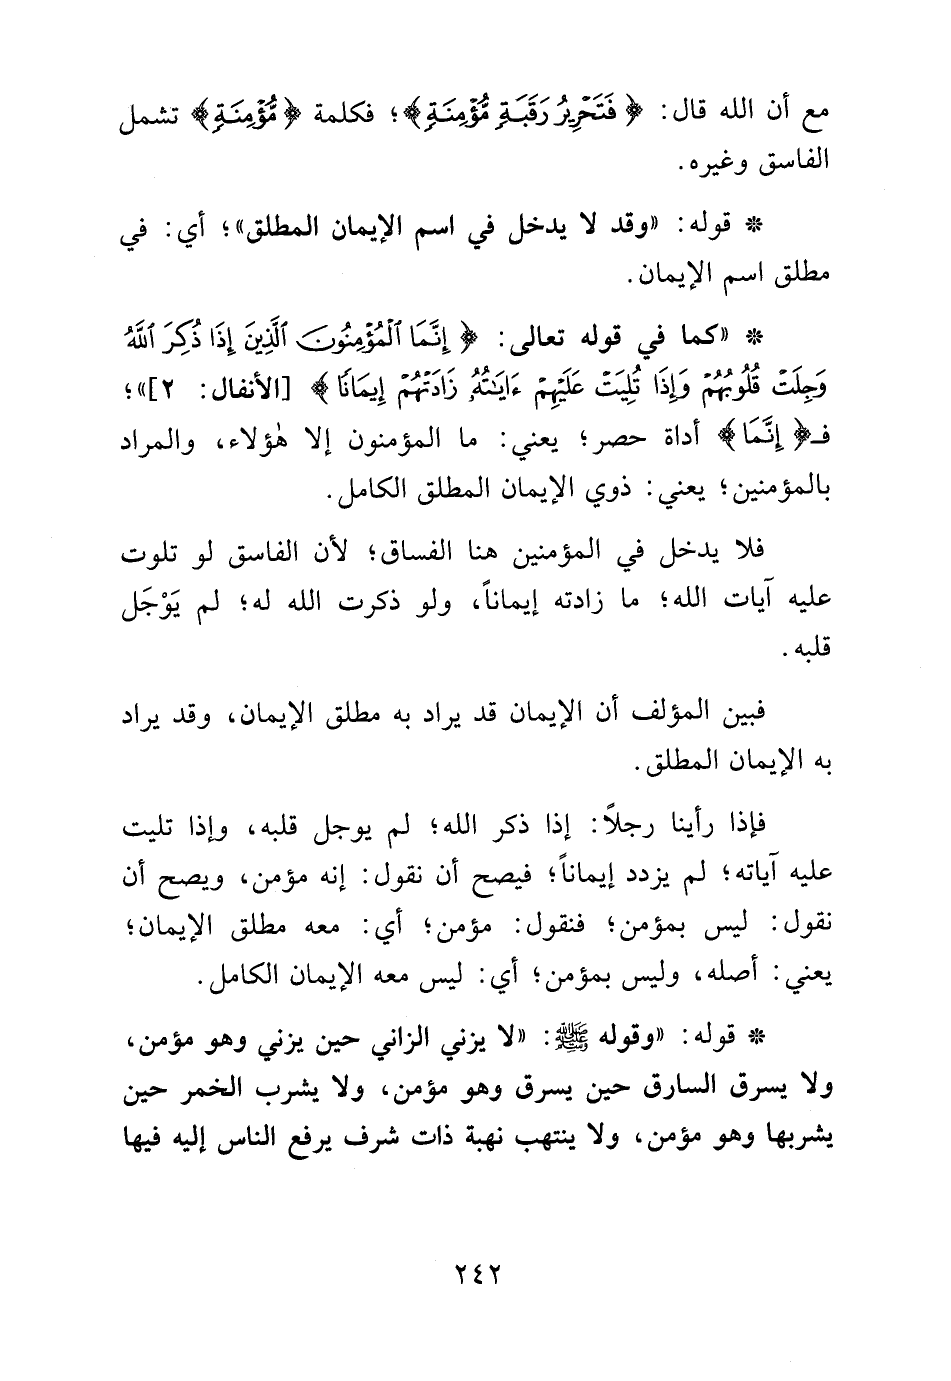 مع أن الله قال: ﴿فَتَحْرِيرُ رَقَبَةٍ مُّؤْمِنَةٍ﴾؛ فكلمة ﴿مُّؤْمِنَةٍ﴾ تشمل
الفاسق وغيره.
* قوله: «وقد لا يدخل في اسم الإيمان المطلق»؛ أي: في
مطلق اسم الإيمان.
* «كما في قوله تعالى: ﴿إِنَّمَا ٱلْمُؤْمِنُونَ ٱلَّذِينَ إِذَا ذُكِرَ ٱللَّهُ
وَجِلَتْ قُلُوبُهُمْ وَإِذَا تُلِيَتْ عَلَيْهِمْ ءَايَٰتُهُۥ زَادَتْهُمْ إِيمَانًا﴾ [الأنفال: ٢]»؛
فـ﴿إِنَّمَا﴾ أداة حصر؛ يعني: ما المؤمنون إلا هٰؤلاء، والمراد
بالمؤمنين؛ يعني: ذوي الإيمان المطلق الكامل.
فلا يدخل في المؤمنين هنا الفساق؛ لأن الفاسق لو تلوت
عليه آيات الله؛ ما زادته إيماناً، ولو ذكرت الله له؛ لم يَوْجَل
قلبه.
فبين المؤلف أن الإيمان قد يراد به مطلق الإيمان، وقد يراد
به الإيمان المطلق.
فإذا رأينا رجلاً: إذا ذكر الله؛ لم يوجل قلبه، وإذا تليت
عليه آياته؛ لم يزدد إيماناً؛ فيصح أن نقول: إنه مؤمن، ويصح أن
نقول: ليس بمؤمن؛ فنقول: مؤمن؛ أي: معه مطلق الإيمان؛
يعني: أصله، وليس بمؤمن؛ أي: ليس معه الإيمان الكامل.
* قوله: «وقوله ﷺ: «لا يزني الزاني حين يزني وهو مؤمن،
ولا يسرق السارق حين يسرق وهو مؤمن، ولا يشرب الخمر حين
يشربها وهو مؤمن، ولا ينتهب نهبة ذات شرف يرفع الناس إليه فيها
٢٤٢